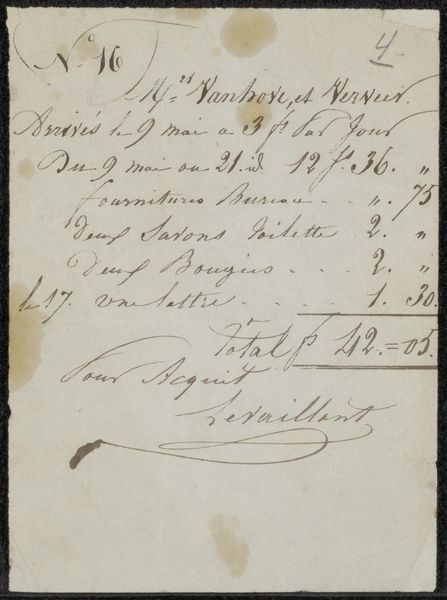 4
N° 16
Mrs Vanhove, et Verveer.
Arrivés le 9 mai a 3 f. Par Jour
Du 9 mai au 21. id. 12 f. 36. "
fournitures Bureau . . ". 75
Deux Savons toilette 2. "
Deux Bougies . . . 2. "
le 17. une lettre . . . . . 1. 30.
Total f 42.=05.
Pour Acquit
Levaillant